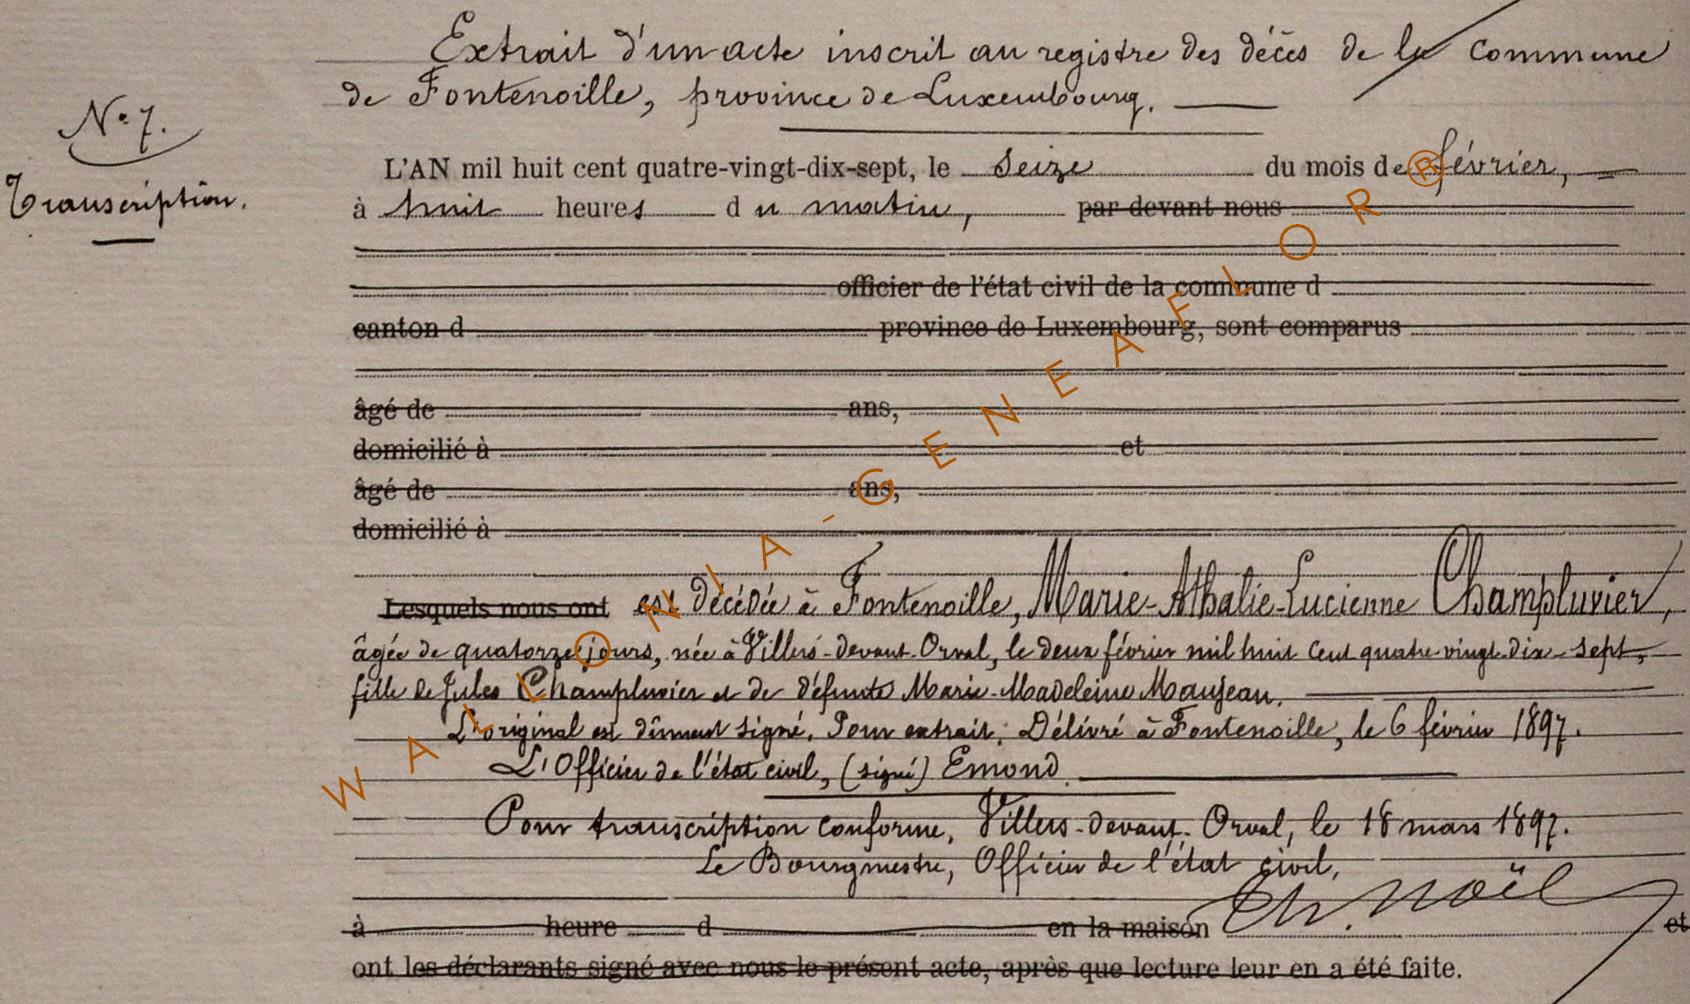 Extrait d'un acte inscrit au registre des décès de la commune
de Fontenoille, province de Luxembourg.
N° 7.
Transcription.
L'AN mil huit cent quatre-vingt-dix-sept, le seize du mois de février,
à huit heures du matin, par devant nous
officier de l'état civil de la commune d
canton d province de Luxembourg, sont comparus
âgé de ans,
domicilié à et
âgé de ans,
domicilié à
Lesquels nous ont est décédée à Fontenoille, Marie-Athalie-Lucienne Champluvier,
âgée de quatorze jours, née à Villers-devant-Orval, le deux février mil huit cent quatre-vingt-dix-sept,
fille de Jules Champluvier et de défunte Marie-Madeleine Maujean.
L'original est dûment signé. Pour extrait. Délivré à Fontenoille, le 6 février 1897.
L'Officier de l'état civil, (signé) Emond
Pour transcription conforme, Villers-devant-Orval, le 18 mars 1897.
Le Bourgmestre, Officier de l'état civil,
Ch. Noël
à heure d en la maison et
ont les déclarants signé avec nous le présent acte, après que lecture leur en a été faite.
WALLONIA-GENEAFLOR®